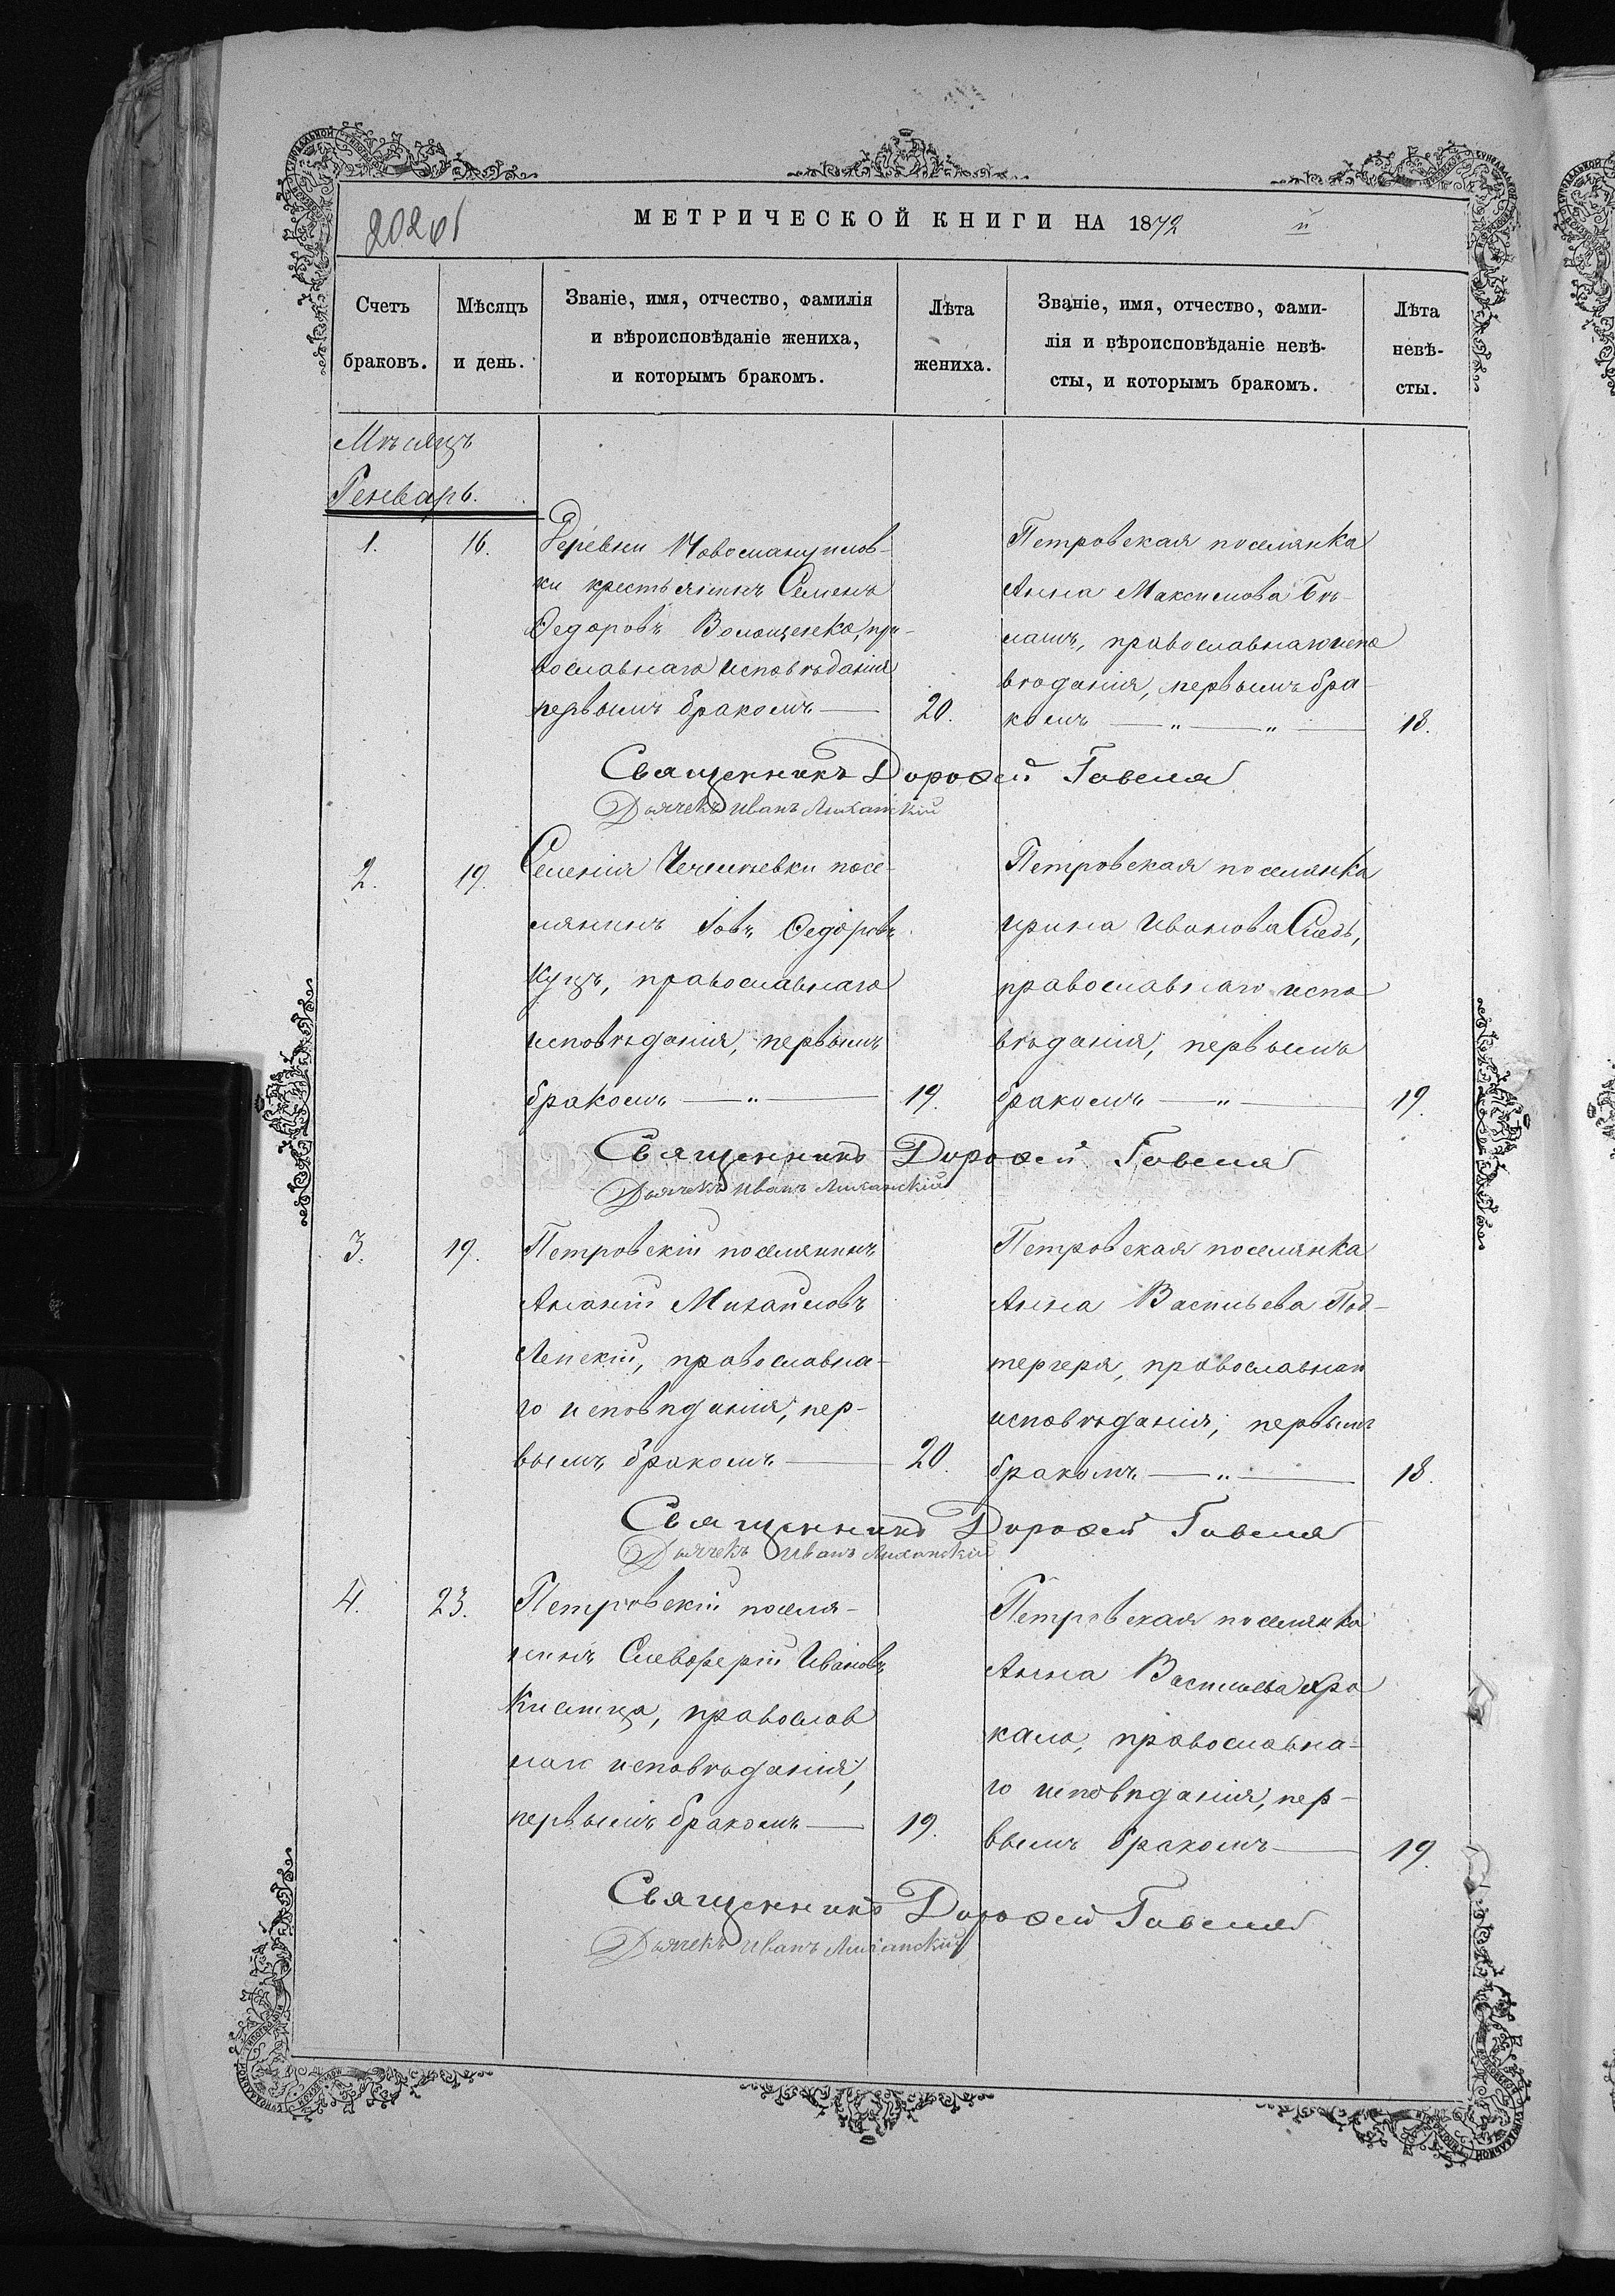 МЕТРИЧЕСКОЙ КНИГИ НА 1872 й
Счетъ браковъ.
Мѣсяцъ и день.
Званіе, имя, отчество, фамилія
и вѣроисповѣданіе жениха,
и которымъ бракомъ.
Лѣта жениха.
Званіе, имя, отчество, фами-
лія и вѣроисповѣданіе невѣ-
сты, и которымъ бракомъ.
Лѣта невѣ-
сты.
Мѣсяцъ
Генварь.
1. 16.
Деревни
ки крестьянинъ Семенъ
Федоровъ Волощенко, пра-
вославнаго исповѣданія
первымъ бракомъ — 20.
Петровская поселянка
Анна Максимова Бѣ-
лашъ, православнаго испо
вѣданія, первымъ бра-
комъ — „ — „ — 18.
Священникъ Дорофей Говеля
Дьячекъ Иванъ
2. 19.
Селенія посе-
лянинъ Іовъ Федоровъ
Куцъ, православнаго
исповѣданія, первымъ
бракомъ — „ — 19.
Петровская поселянка
Ирина Иванова
православнаго испо
вѣданія, первымъ
бракомъ — „ — 19.
Священникъ Дорофей Говеля
Дьячекъ Иванъ
3. 19.
Петровскій поселянинъ
Ананій Михайловъ
Лепскій, православна-
го исповѣданія, пер-
вымъ бракомъ — 20.
Петровская поселянка
Анна Васильева Под-
тергера, православнаго
исповѣданія, первымъ
бракомъ — „ — 18.
Священникъ Дорофей Говеля
Дьячекъ Иванъ
4. 23.
Петровскій поселя-
нинъ Елевферій Ивановъ
православ
наго исповѣданія,
первымъ бракомъ — 19.
Петровская поселянка
Анна Васильева
православна-
го исповѣданія, пер-
вымъ бракомъ — 19.
Священникъ Дорофей Говеля
Дьячекъ Иванъ